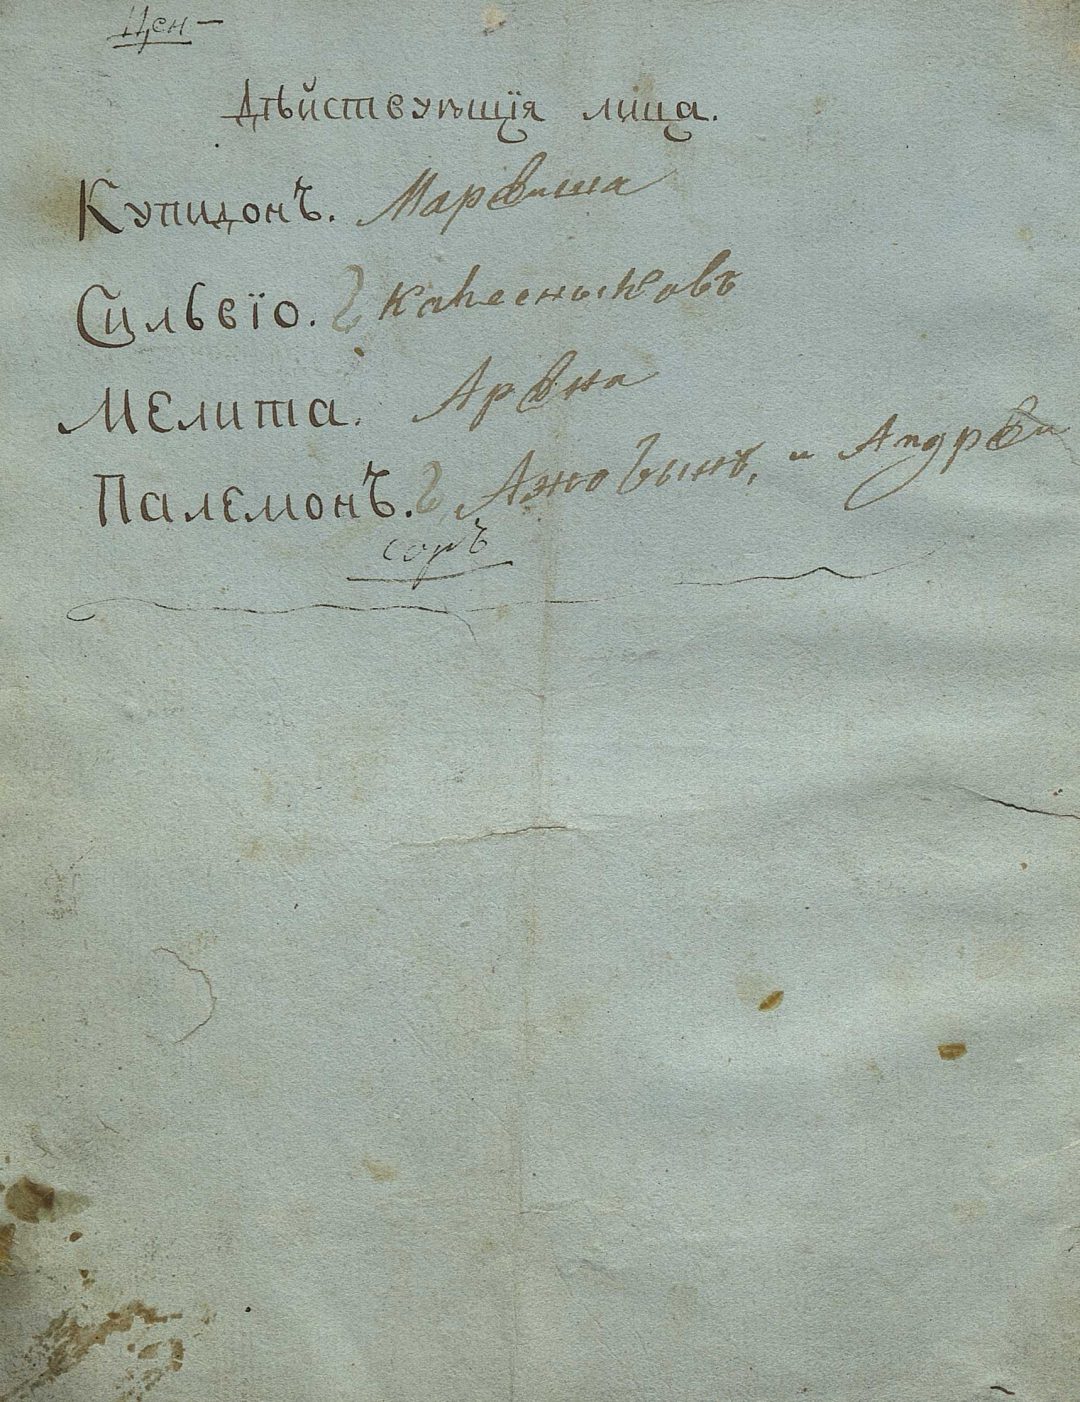 Цен-
Дѣйствующія лица.
Купидонъ. Марѳиша
Сильвіо. Г Колесниковъ
Мелита. Арѳна
Палемонъ. Г, Ажогинъ, и Андрѳи